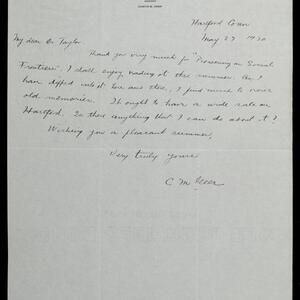 CURTIS M. GEER
Hartford Conn
May 27 1930
My dear Dr Taylor
Thank you very much for "Pioneering on Social
Frontiers". I shall enjoy reading it this summer. As I
have dipped into it here and there, I find much to revive
old memories. It ought to have a wide sale in
Hartford. Is there anything that I can do about it?
Wishing you a pleasant summer,
Very truly yours
C M Geer